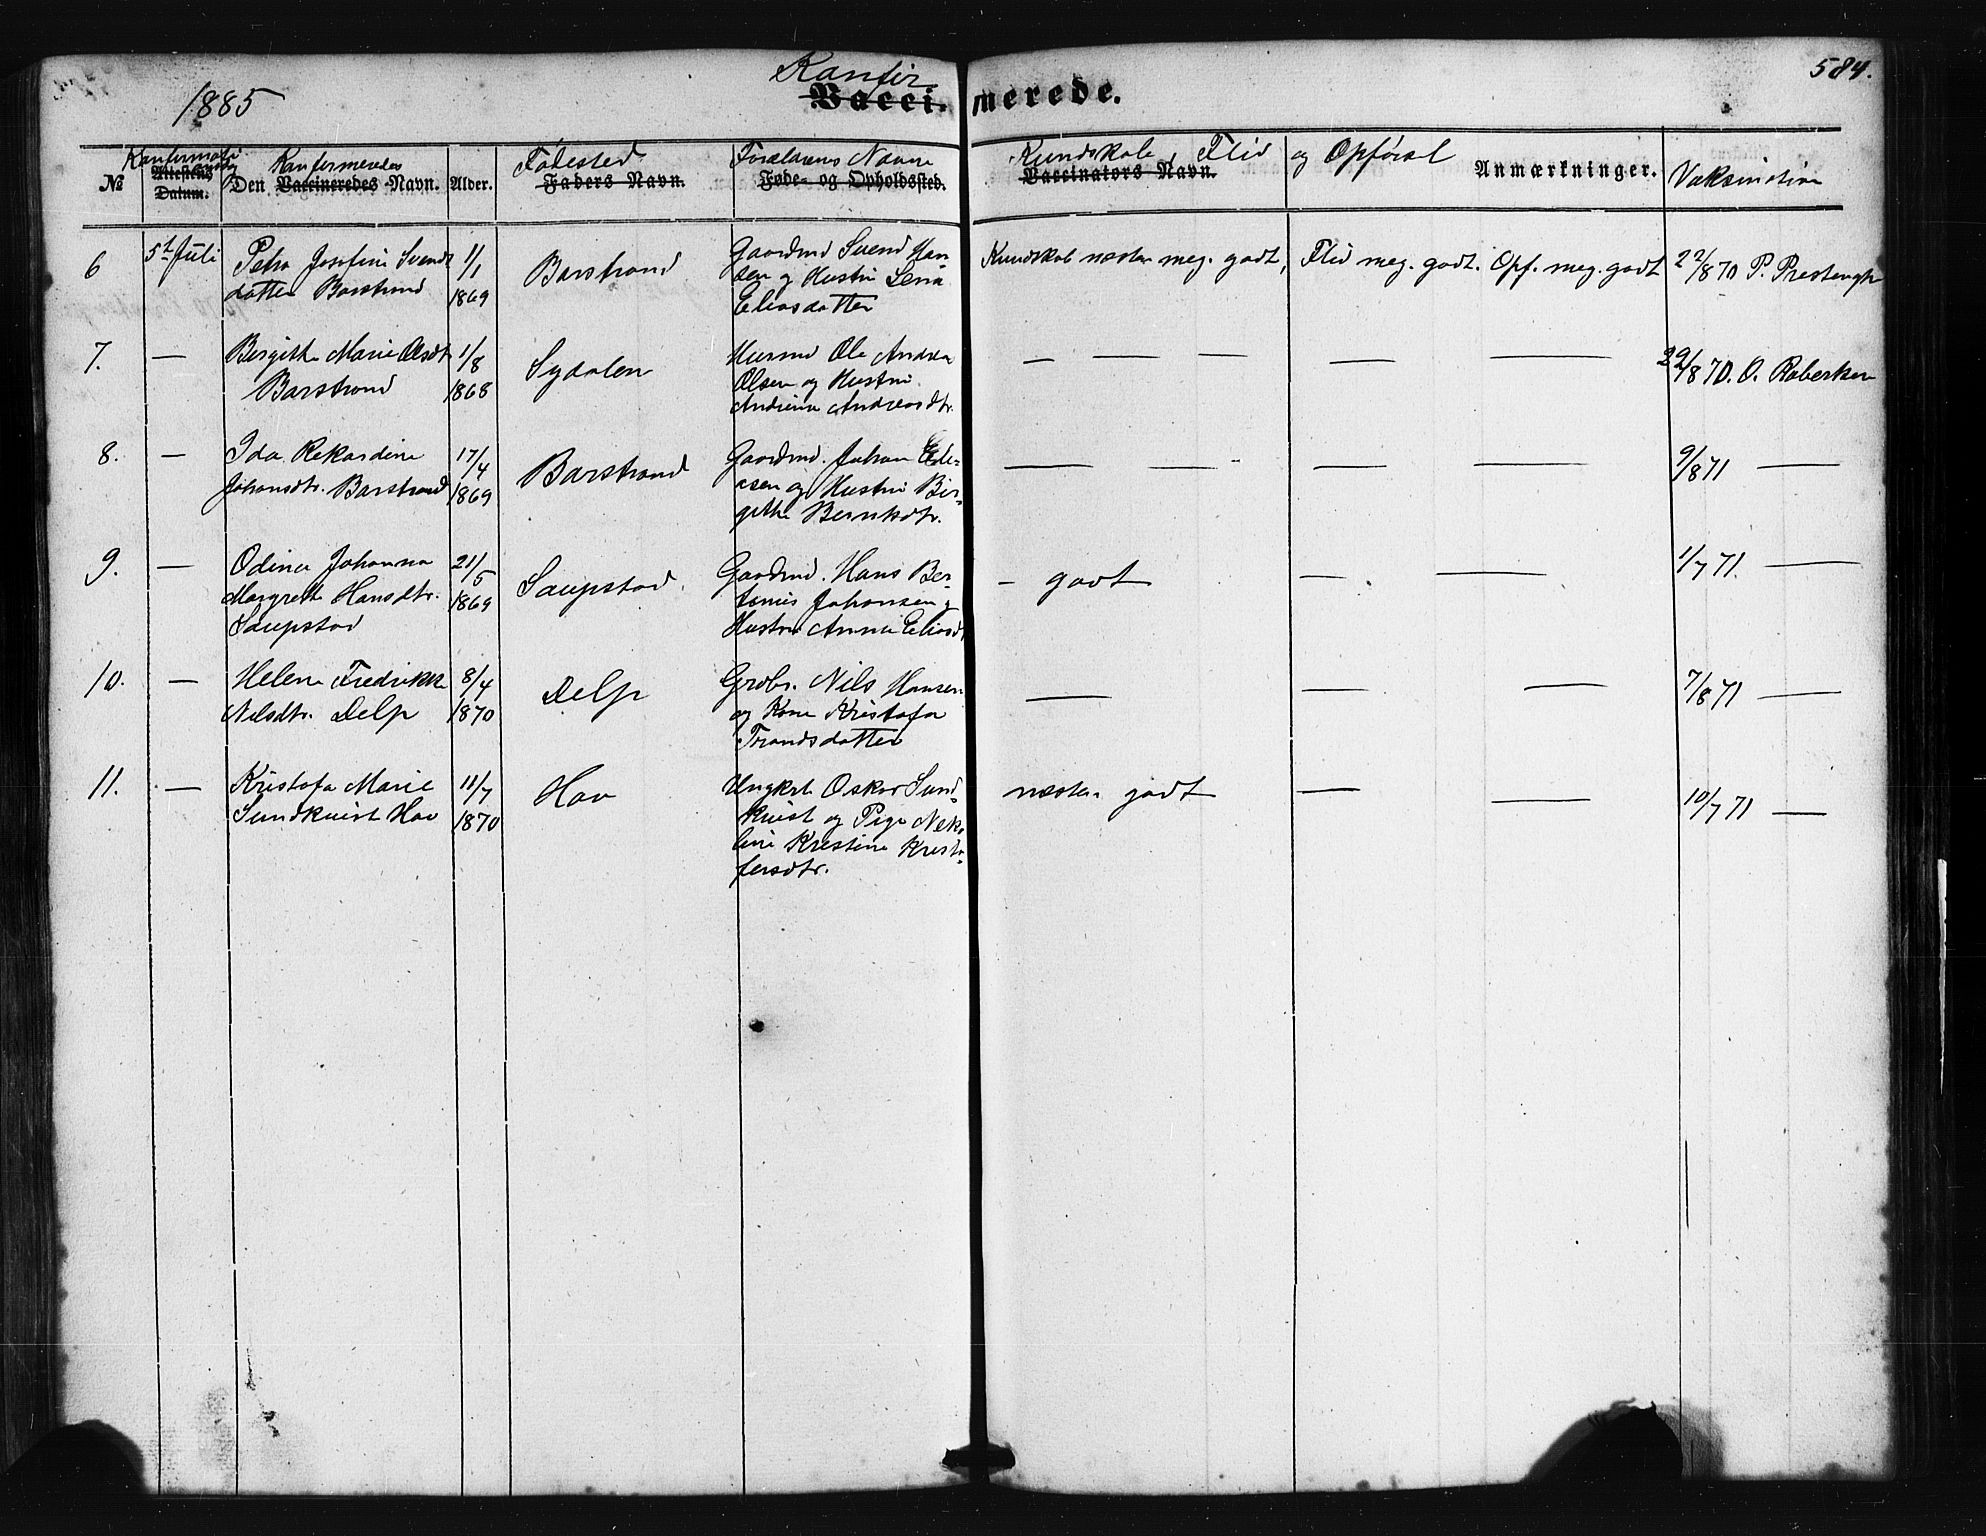 584.
1885
Konfir-
Vacci- merede.
Konfirmati
onsdag
№ Attestens Datum.
Konfirmeredes
Den Vaccineredes Navn.
Alder.
Fødested
Faders Navn.
Forældrenes Navne
Føde- og Opholdssted.
Kundskab, Flid og Opførsel
Vaccinators Navn.
Anmærkninger.
Vaksination
6 5t Juli Petra Josefine Svends 1/1 Barstrand Gaardmd Svend Han Kundskab næsten meg. godt, Flid meg. godt. Opf. meg. godt 22/8 70 P.
datter Barstrand 1869 sen og Hustru
Eliasdatter
7. — Birgithe Marie Olsdtr 1/8 Sydalen Husmd Ole Andrea — — — — — 29/8 70. O. Robertsen
Barstrand 1868 Olsen og Hustru
Andreasdtr.
8. — Ida Rekardine 17/4 Barstrand Gaardmd. Johan — — - — — 9/8 71 —
Johansdtr. Barstrand 1869 sen og Hustru Bir-
githe Berntsdtr.
9. — Odine Johanna 21/5 Saupstad Gaardmd. Hans Ber- - godt — — 1/7 71. —
Margrethe Hansdtr. 1869 Johansen og
Saupstad Hustru Anna Eliasd
10. — Helene Fredrikke 8/4 Delp Grdbr. Nils Hansen — — — 7/8 71 —
Nilsdtr. Delp 1870 og Kone Kristofa
Trondsdatter
11. — Kristofa Marie 11/7 Hov Ungkrl. Oskar Sund- næsten godt — — 10/7 71 —
Sundkvist Hov 1870 kvist og Pige Neko
line Kristine Kristo-
fersdtr.